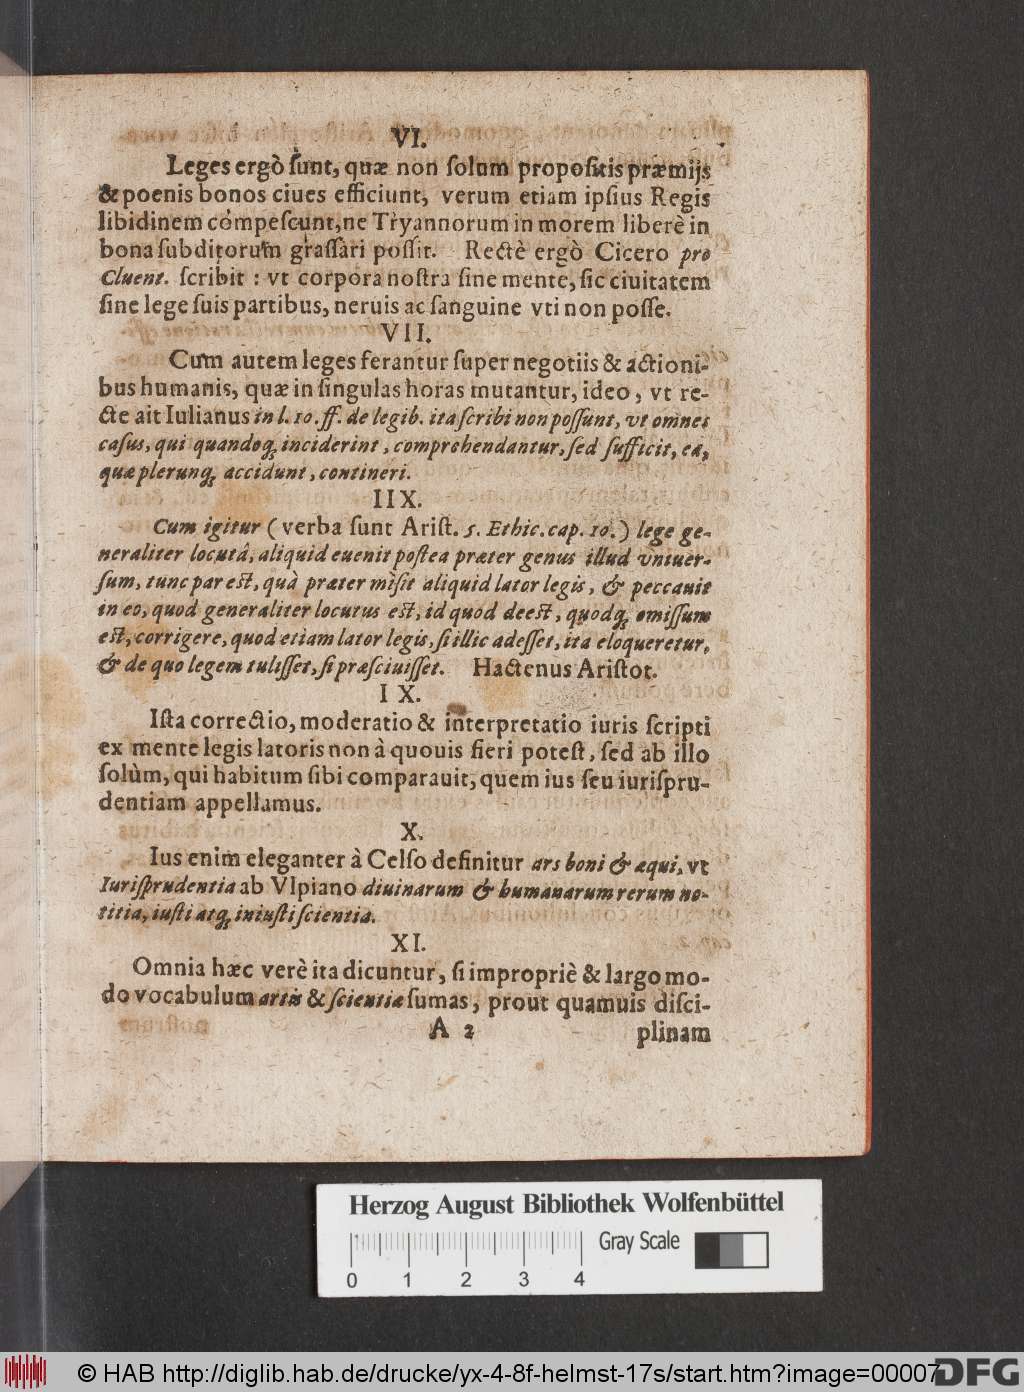 VI.
Leges ergò ſunt, quæ non ſolum propoſitis præmijs
& poenis bonos ciues efficiunt, verum etiam ipſius Regis
libidinem compeſcunt, ne Tryannorum in morem liberè in
bona ſubditorum graſſari poſſit. Rectè ergò Cicero pro
Cluent. ſcribit : vt corpora noſtra ſine mente, ſic ciuitatem
ſine lege ſuis partibus, neruis ac ſanguine vti non poſſe.
VII.
Cum autem leges ferantur ſuper negotiis & actioni-
bus humanis, quæ in ſingulas horas mutantur, ideo, vt re-
cte ait Iulianus in l. 10. ff. de legib. ita ſcribi non poſſunt, vt omnes
caſus, qui quandoq; inciderint, comprehendantur, ſed ſufficit, ea,
quæ plerunq; accidunt, contineri.
IIX.
Cum igitur ( verba ſunt Ariſt. 5. Ethic. cap. 10. ) lege ge-
neraliter locutâ, aliquid euenit poſtea præter genus illud vniuer-
ſum, tunc par eſt, quà præter miſit aliquid lator legis, & peccauit
in eo, quod generaliter locutus eſt, id quod deeſt, quodq; omiſſum
eſt, corrigere, quod etiam lator legis, ſi illic adeſſet, ita eloqueretur,
& de quo legem tuliſſet, ſi præſciuiſſet. Hactenus Ariſtot.
IX.
Iſta correctio, moderatio & interpretatio iuris ſcripti
ex mente legis latoris non à quouis fieri poteſt, ſed ab illo
ſolùm, qui habitum ſibi comparauit, quem ius ſeu iuriſpru-
dentiam appellamus.
X.
Ius enim eleganter à Celſo definitur ars boni & æqui, vt
Iuriſprudentia ab Vlpiano diuinarum & humanarum rerum no-
titia, iuſti atq; iniuſti ſcientia.
XI.
Omnia hæc verè ita dicuntur, ſi impropriè & largo mo-
do vocabulum artis & ſcientiæ ſumas, prout quamuis diſci-
A 2 plinam
Herzog August Bibliothek Wolfenbüttel
Gray Scale
0 1 2 3 4
© HAB http://diglib.hab.de/drucke/yx-4-8f-helmst-17s/start.htm?image=00007
DFG